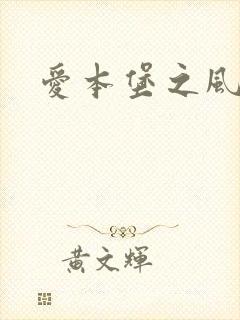 愛本堡之風
黃文輝